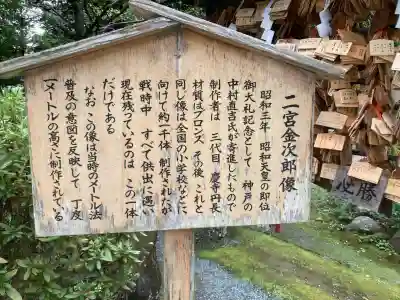 二宮金次郎像
昭和三年 昭和天皇の即位
御大礼記念として 神戸の
中村直吉氏が寄進したもので
制作者は 三代目 慶寺丹長
材質はブロンズ その後 これと
同じ像は全国の小学校などに
向けて約一千体 制作されたが
戦時中 すべて供出に遇い
現在残っているのは この一体
だけである
なお この像は当時のメートル法
普及の意図を反映して 丁度
一メートルの高さに制作されている
必勝